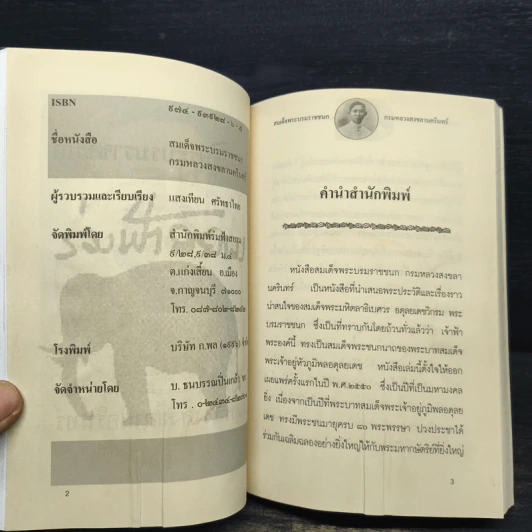 ISBN
๙๗๔ - ๙๓๙๒๘ - ๖ - ๕
ชื่อหนังสือ
สมเด็จพระบรมราชชนก
กรมหลวงสงขลานครินทร์
ผู้รวบรวมและเรียบเรียง
แสงเทียน ศรัทธาไทย
จัดพิมพ์โดย
สำนักพิมพ์ร่มฟ้าสยาม
๙/๒๘,๙/๓๘ ม.๔
ต.แก่งเสี้ยน อ.เมือง
จ.กาญจนบุรี ๗๑๐๐๐
โทร.
โรงพิมพ์
บริษัท ก.พล (๑๙๙๖)
จัดจำหน่ายโดย
บ. ธนบรรณปิ่นเกล้า
โทร .
2
สมเด็จพระบรมราชชนก
กรมหลวงสงขลานครินทร์
คำนำสำนักพิมพ์
หนังสือสมเด็จพระบรมราชชนก กรมหลวงสงขลา
นครินทร์ เป็นหนังสือที่นำเสนอพระประวัติและเรื่องราว
น่าสนใจของสมเด็จพระมหิตลาธิเบศวร อดุลยเดชวิกรม พระ
บรมราชชนก ซึ่งเป็นที่ทราบกันโดยถ้วนทั่วแล้วว่า เจ้าฟ้า
พระองค์นี้ ทรงเป็นสมเด็จพระชนกนาถของพระบาทสมเด็จ
พระเจ้าอยู่หัวภูมิพลอดุลยเดช หนังสือเล่มนี้ตั้งใจให้ออก
เผยแพร่ครั้งแรกในปี พ.ศ.๒๕๕๐ ซึ่งเป็นปีที่เป็นมหามงคล
ยิ่ง เนื่องจากเป็นปีที่พระบาทสมเด็จพระเจ้าอยู่ภูมิพลอดุลย
เดช ทรงมีพระชนมายุครบ ๘๐ พระพรรษา ปวงประชาได้
ร่วมกันเฉลิมฉลองอย่างยิ่งใหญ่ให้กับพระมหากษัตริย์ที่ยิ่งใหญ่
3